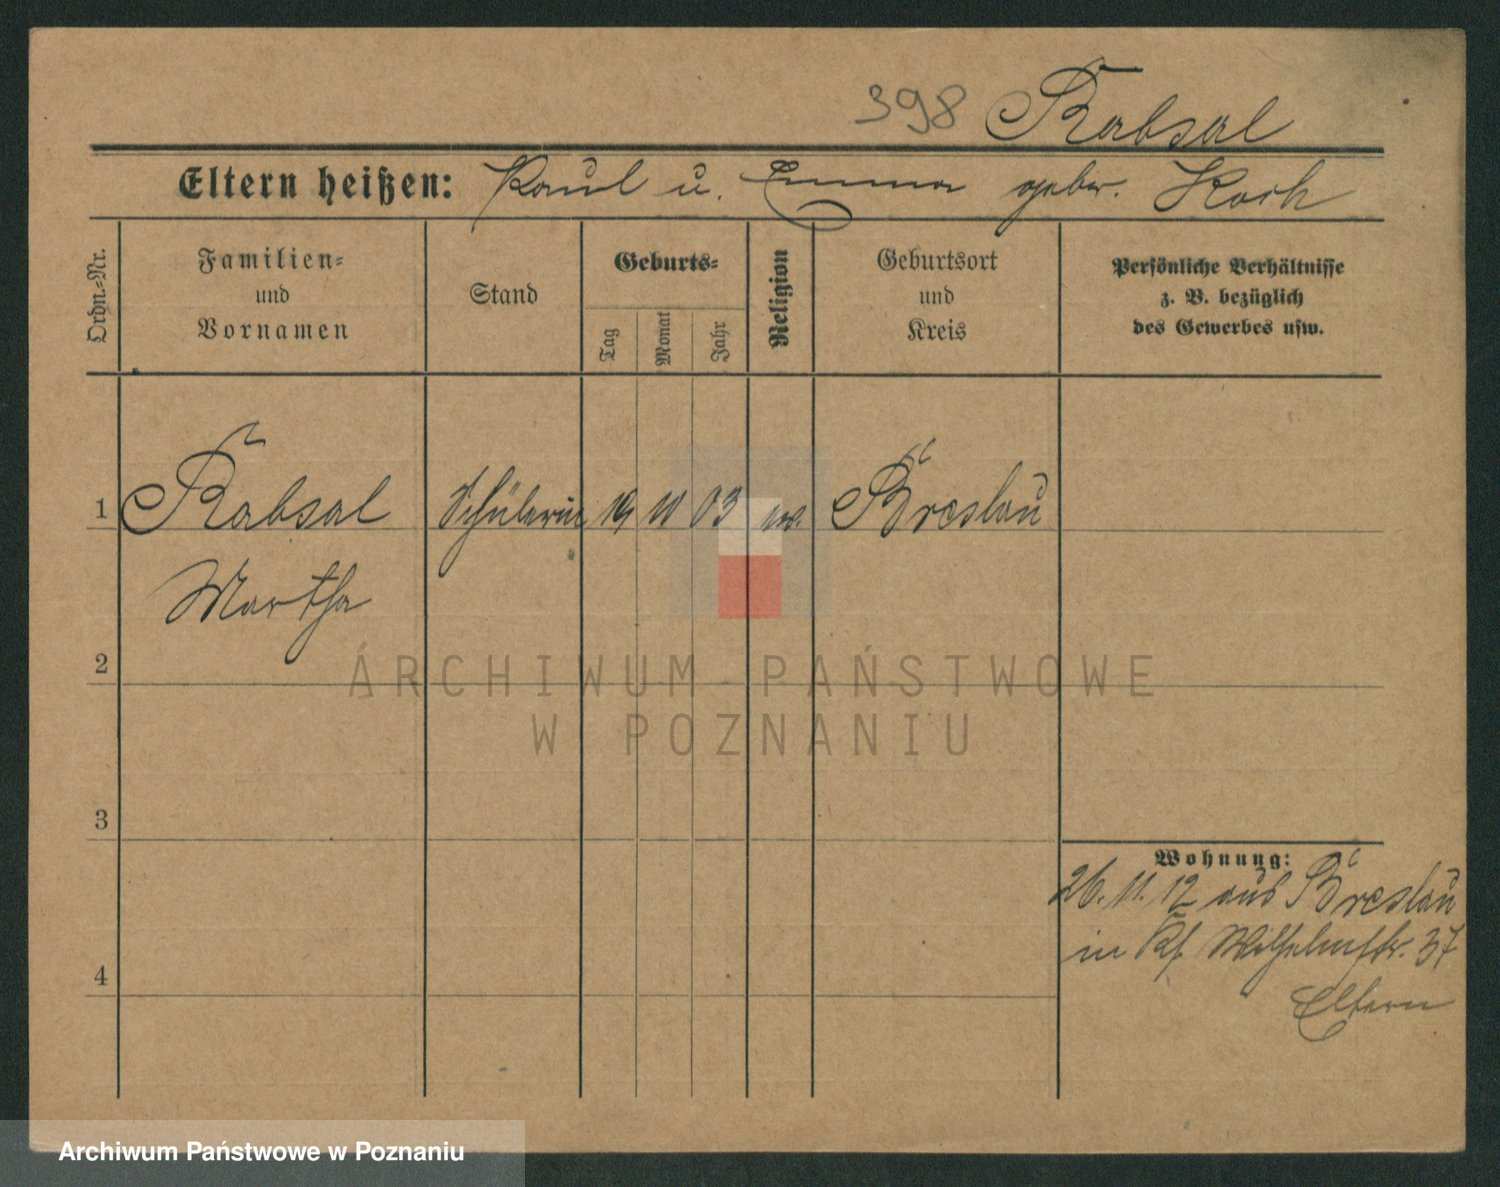 398 Rabsal
Eltern heißen: Paul u. Emma gebor. Koch
Ordn.-Nr.
Familien-
und
Vornamen
Stand
Geburts-
Tag
Monat
Jahr
Religion
Geburtsort
und
Kreis
Persönliche Verhältnisse
z. B. bezüglich
des Gewerbes usw.
1 Rabsal Schülerin 19 10 03 Breslau
Martha
2
ARCHIWUM PAŃSTWOWE
W POZNANIU
3
Wohnung:
26. 11. 12 aus Breslau
in Wilhelmstr. 37
4
Eltern
Archiwum Państwowe w Poznaniu